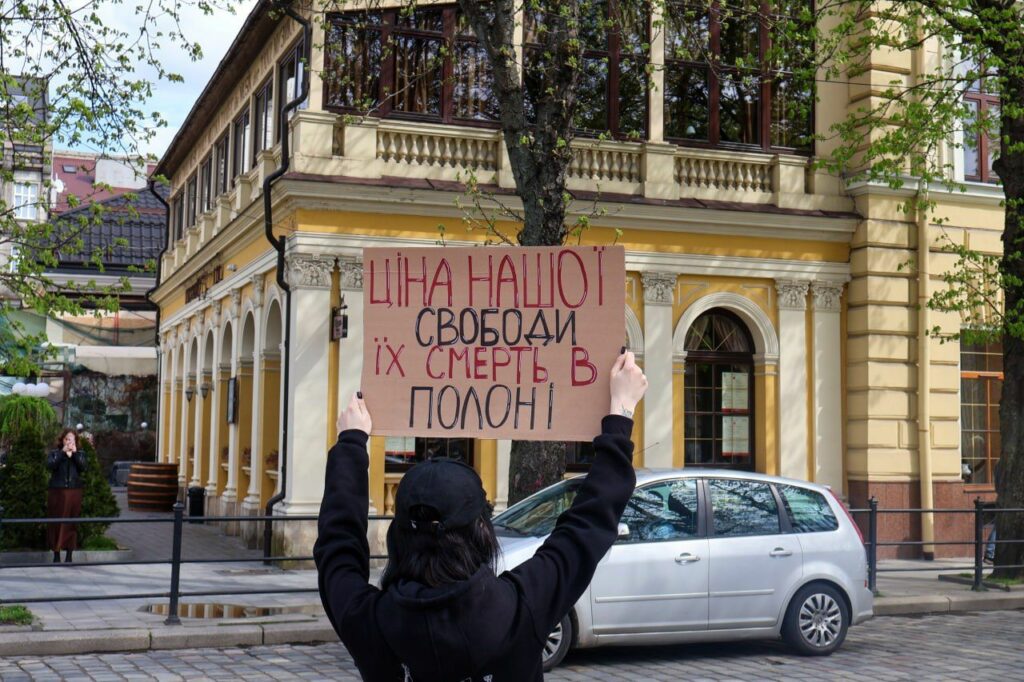 ЦІНА НАШОЇ
СВОБОДИ
ЇХ СМЕРТЬ В
ПОЛОНІ